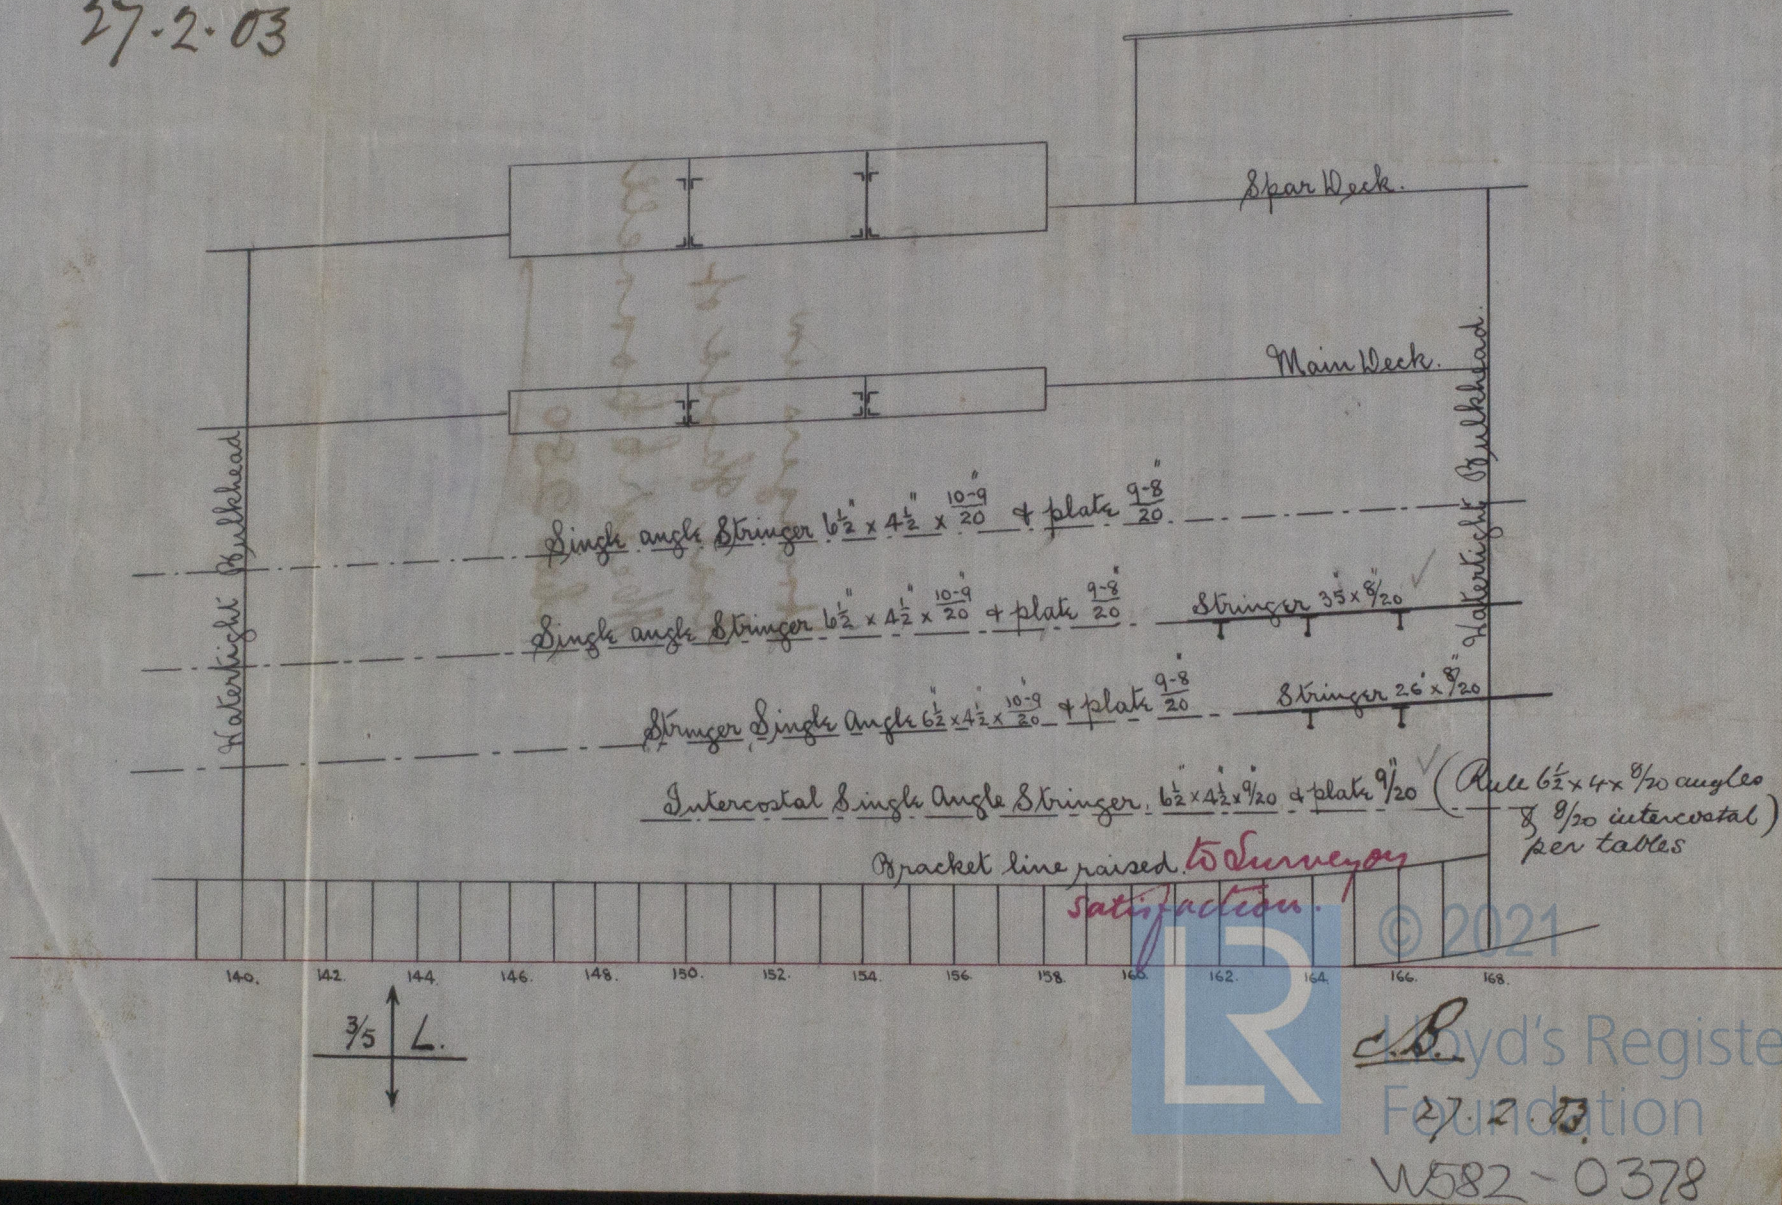 27.2.03
Spar Deck.
Main Deck.
Watertight Bulkhead
Watertight Bulkhead.
Single angle Stringer 6½" x 4½" x 10-9/20" & plate 9-8/20"
Single angle Stringer 6½" x 4½" x 10-9/20" & plate 9-8/20"
Stringer 35" x 8/20"
Stringer Single Angle 6½" x 4½" x 10-9/20" & plate 9-8/20"
Stringer 26" x 8/20"
Intercostal Single Angle Stringer. 6½" x 4½" x 9/20" & plate 9/20" (Rule 6½ x 4 x 8/20 angles
& 8/20 intercostal)
per tables
Bracket line raised. to Surveyors
satisfaction.
140. 142. 144. 146. 148. 150. 152. 154. 156. 158. 160. 162. 164. 166. 168.
3/5 L.
© 2021
LR
Lloyd's Registe
Foundation
27.2.03.
W582-0378